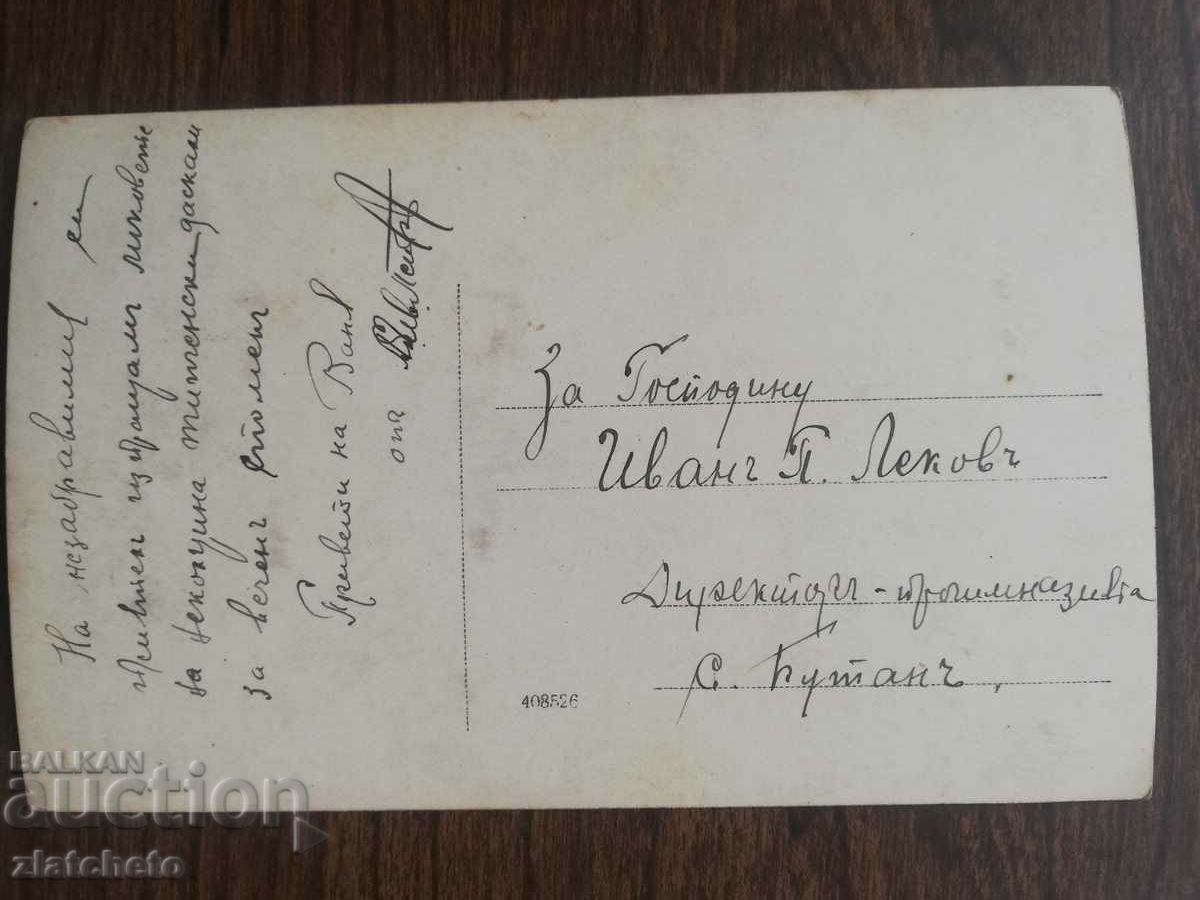 На незабравимия си
приятел изпращам ликоветѣ
на неколцина типченски даскали
за вѣченъ споменъ
Привети на Ваня
отъ
За Господину
Иванъ П. Лековъ
Директоръ - прогимназията
с. Бутанъ,
408526
BALKAN
auction
zlatcheto